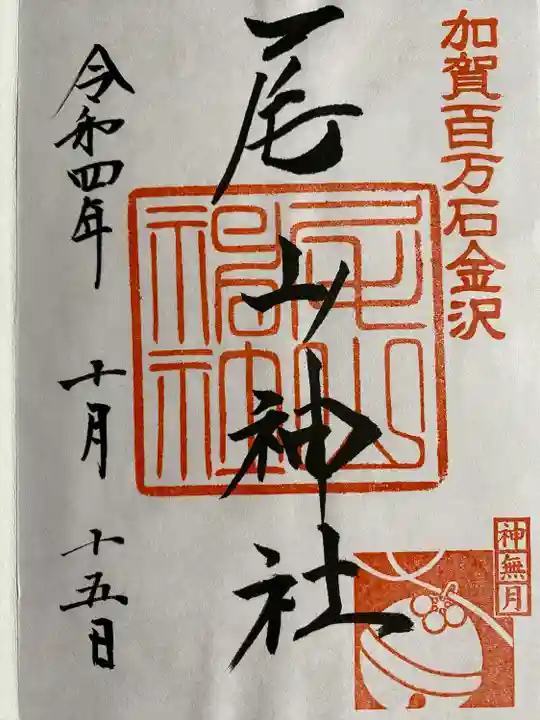 加賀百万石金沢
尾山神社
令和四年 十月 十五日
神無月